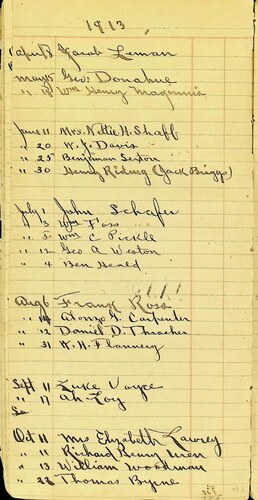 1913
Apr 3 Jacob Leman
May 5 Geo. Donahue
" 18 Wm Henry Maginnis
June 11 Mrs. Nettie H. Shaff
" 20 W. J. Davis
" 25 Benjiman Sexton
" 30 Henry Riding (Jack Briggs)
July 1 John Schafer
" 3 Wm Foss
" 5 Wm C Pickle
" 12 Geo A Weston
" 4 Ben Herald
Aug 6 Frank Ross
" 14 Alonzo G. Carpenter
" 12 Daniel D. Thrasher
" 31 W. H. Flannery
Sept 11 Luke Voyce
" 17 Ah Loy
Se
Oct 11 Mrs Elizabeth Lawrey
" 11 Richard Henry Uren
" 13 William Woodman
" 23 Thomas Byrne